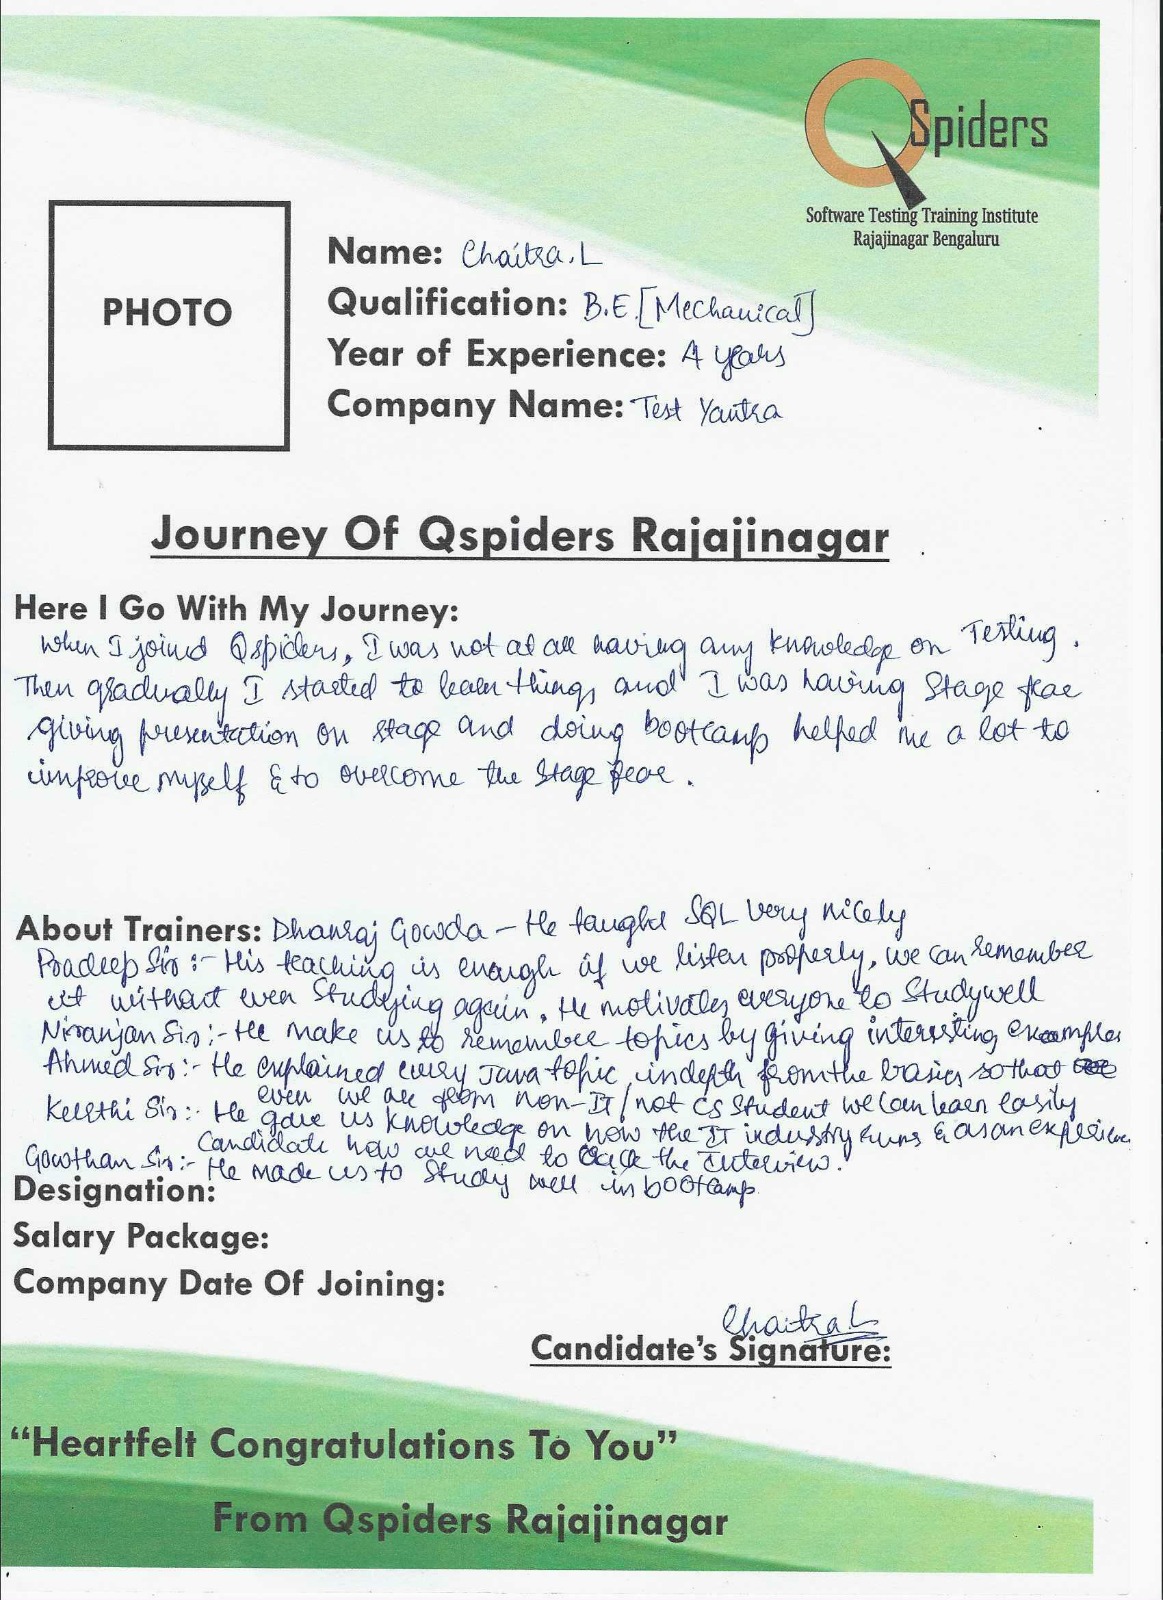 QSpiders
Software Testing Training Institute
Rajajinagar Bengaluru
PHOTO
Name: Chaitra.L
Qualification: B.E.[Mechanical]
Year of Experience: 4 years
Company Name: Test Yantra
Journey Of Qspiders Rajajinagar
Here I Go With My Journey:
When I joined Qspiders, I was not at all having any knowledge on Testing.
Then gradually I started to learn things and I was having Stage fear
giving presentation on stage and doing bootcamp helped me a lot to
improve myself & to overcome the Stage fear.
About Trainers: Dhanraj Gowda - He taught SQL very nicely
Pradeep Sir :- His teaching is enough if we listen properly, we can remember
it without even Studying again. He motivates everyone to Study well
Niranjan Sir:- He make us to remember topics by giving interesting examples
Ahmed Sir:- He explained every Java topic indepth from the basics so that
even we are from non-IT/not CS Student we can learn easily
Keerthi Sir:- He gave us knowledge on how the IT industry runs & as an experience
Candidate how we need to crack the Interview.
Gowthan Sir:- He made us to Study well in bootcamp
Designation:
Salary Package:
Company Date Of Joining:
Chaitra L
Candidate's Signature:
“Heartfelt Congratulations To You”
From Qspiders Rajajinagar